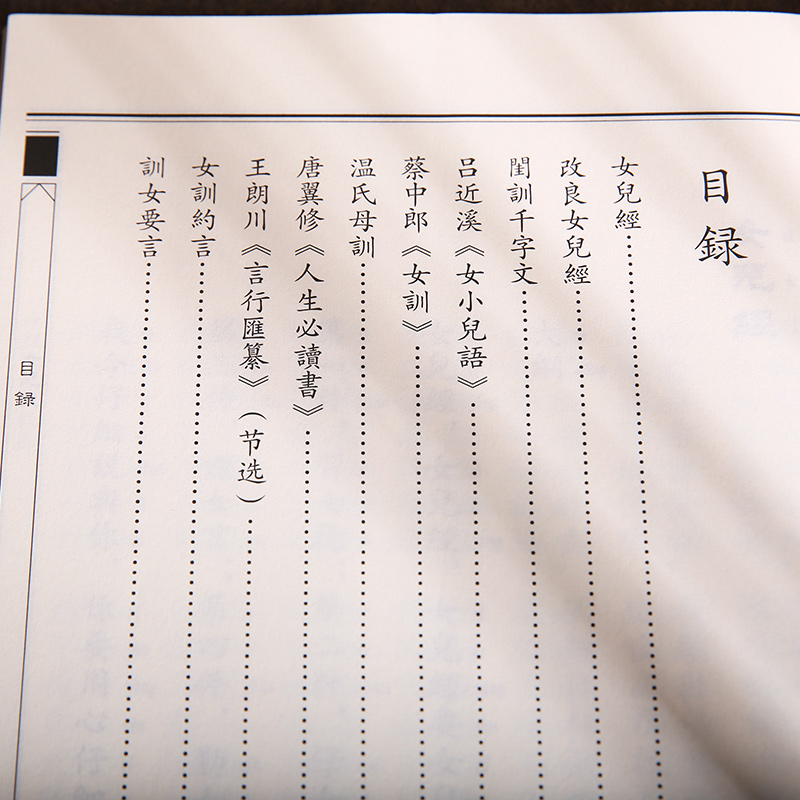 目録
女兒經
改良女兒經
閨訓千字文
吕近溪《女小兒語》
蔡中郎《女訓》
温氏母訓
唐翼修《人生必讀書》
王朗川《言行匯纂》（节选）
女訓約言
訓女要言
目録